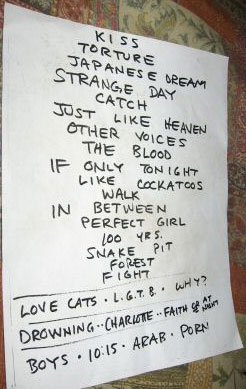 KISS
TORTURE
JAPANESE DREAM
STRANGE DAY
CATCH
JUST LIKE HEAVEN
OTHER VOICES
THE BLOOD
IF ONLY TONIGHT
LIKE COCKATOOS
WALK
IN BETWEEN
PERFECT GIRL
100 YRS.
SNAKE PIT
FOREST
FIGHT
LOVE CATS · L.G.T.B. · WHY?
DROWNING · CHARLOTTE · FAITH OR AT NIGHT
BOYS · 10:15 · ARAB · PORN